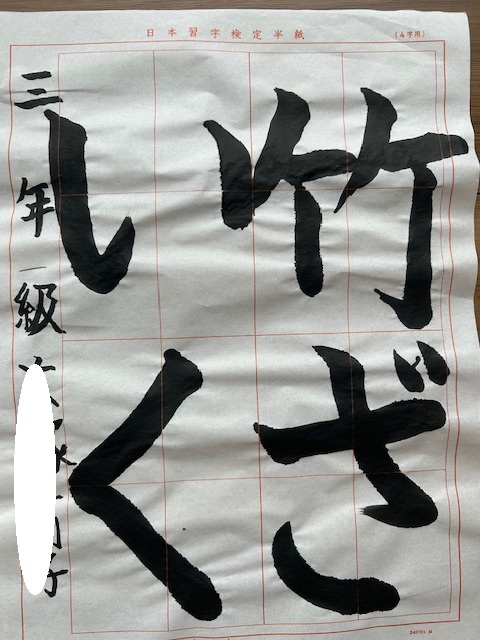 日本習字検定半紙
（4字用）
竹ざ
いく
三年 一級